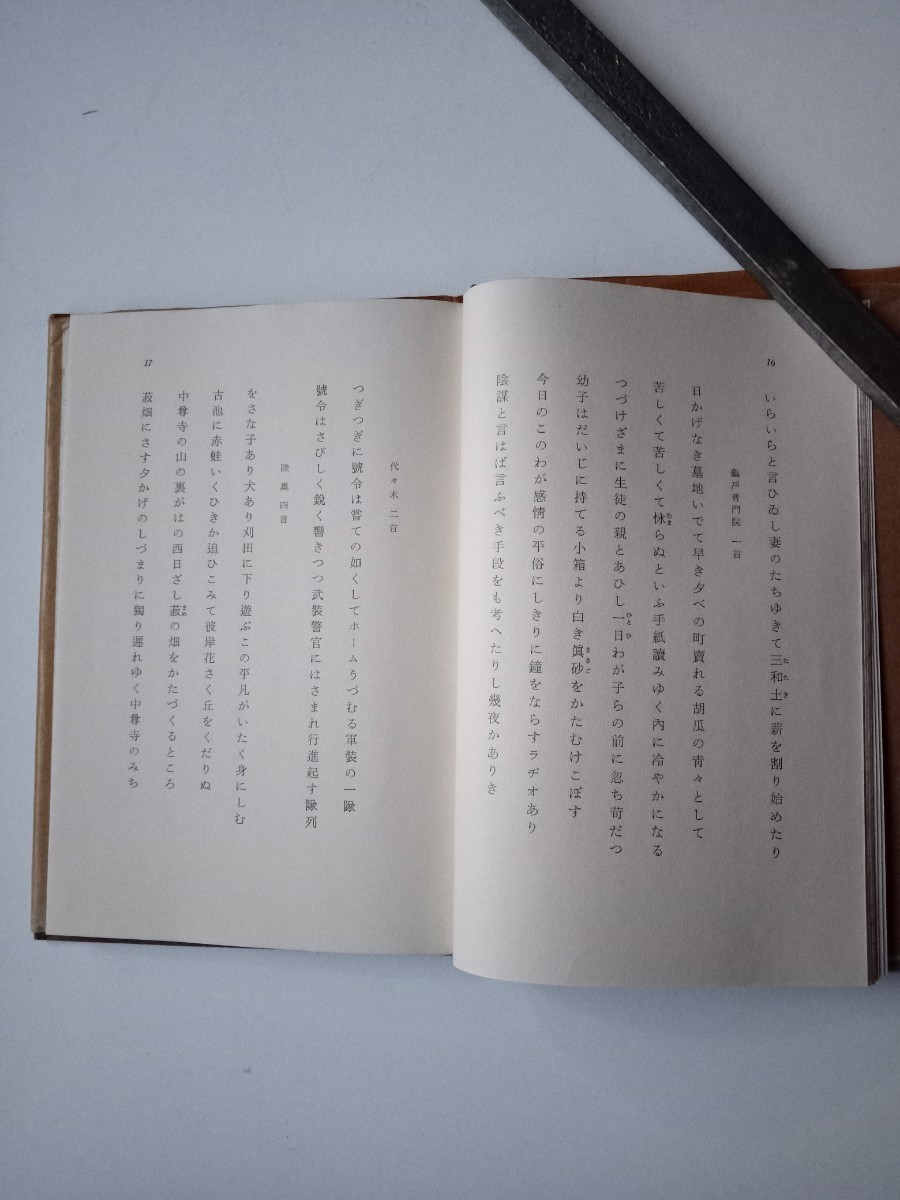 16
いらいらと言ひゐし妻のたちゆきて三和土に薪を割り始めたり
たたき
龜戸普門院 一首
日かげなき墓地いでて早き夕べの町賣れる胡瓜の青々として
苦しくて苦しくて怺らぬといふ手紙讀みゆく內に冷やかになる
たま
つづけざまに生徒の親とあひし一日わが子らの前に忽ち苛だつ
ひとひ
幼子はだいじに持てる小箱より白き眞砂をかたむけこぼす
まさご
今日のこのわが感情の平俗にしきりに鐘をならすラヂオあり
陰謀と言はば言ふべき手段をも考へたりし幾夜かありき
17
代々木 二首
つぎつぎに號令は嘗ての如くしてホームうづむる軍裝の一隊
號令はさびしく鋭く響きつつ武裝警官にはさまれ行進起す隊列
陸奥 四首
をさな子あり犬あり刈田に下り遊ぶこの平凡がいたく身にしむ
古池に赤蛙いくひきか追ひこみて彼岸花さく丘をくだりぬ
中尊寺の山の裏がはの西日ざし菽の畑をかたづくるところ
まめ
菽畑にさす夕かげのしづまりに獨り遲れゆく中尊寺のみち